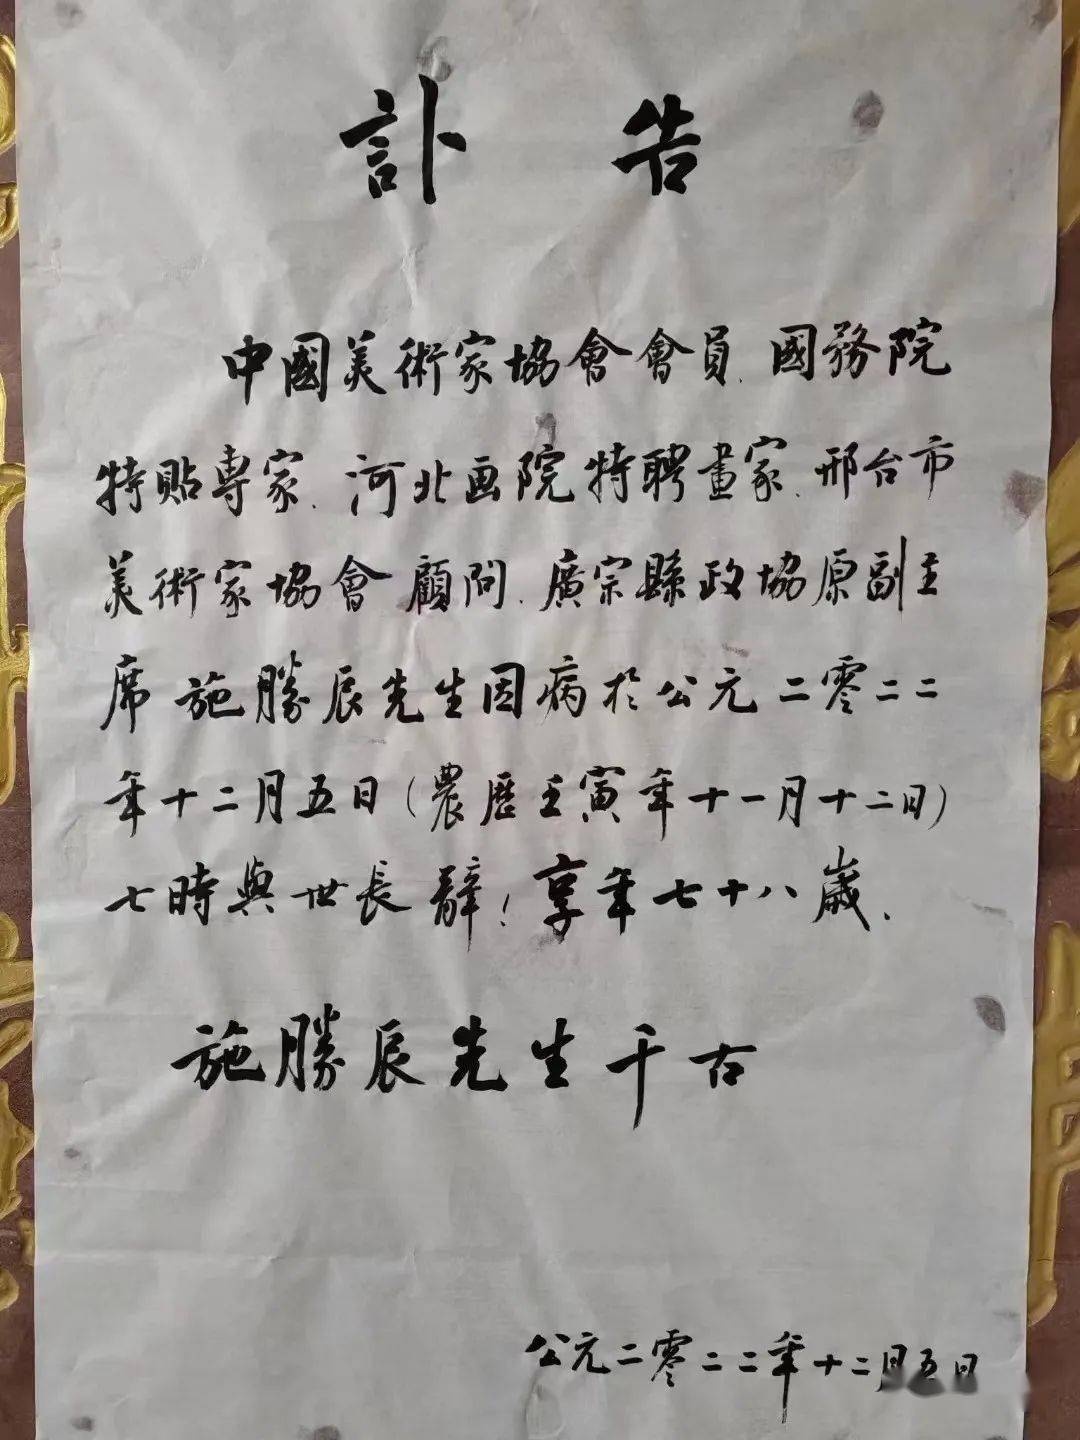 訃告
中國美術家協會會員.國務院
特貼專家.河北画院特聘畫家.邢台市
美術家協會顧問.廣宗縣政協原副主
席施勝辰先生因病於公元二零二二
年十二月五日(農歷壬寅年十一月十二日)
七時與世長辭！享年七十八歲.
施勝辰先生千古
公元二零二二年十二月五日